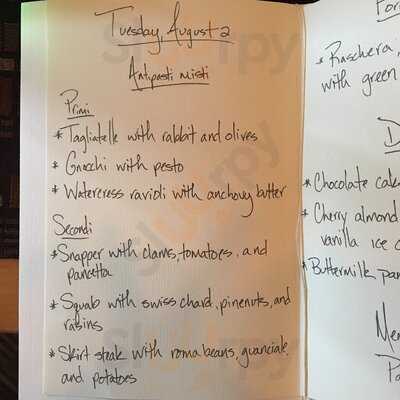 Tuesday, August 2
Antipasti misti
Primi
* Tagliatelle with rabbit and olives
* Gnocchi with pesto
* Watercress ravioli with anchovy butter
Secondi
* Snapper with clams, tomatoes, and
pancetta
* Squab with swiss chard, pinenuts, and
raisins
* Skirt steak with roma beans, guanciale,
and potatoes
For
* Raschera,
with green
D
* Chocolate cake
* Cherry almond
vanilla ice c
* Buttermilk pan
Men